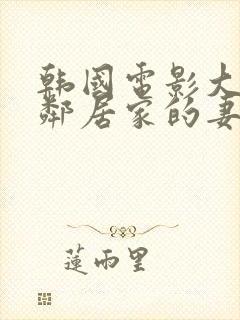 韩国电影大
邻居家的妻
莲雨里